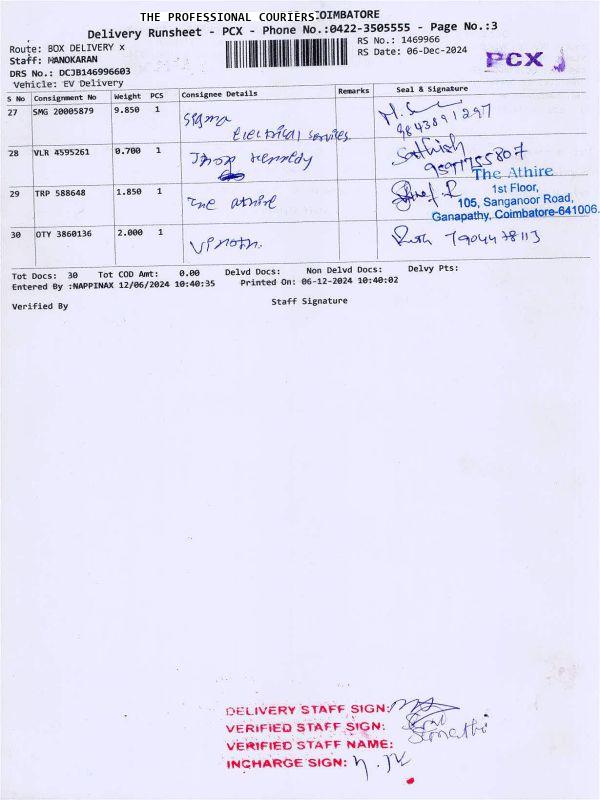 THE PROFESSIONAL COURIERS:COIMBATORE
Delivery Runsheet - PCX - Phone No.:0422-3505555 - Page No.:3
Route: BOX DELIVERY x
RS No.: 1469966
Staff: MANOKARAN
RS Date: 06-Dec-2024
PCX
DRS No.: DCJB146996603
Vehicle: EV Delivery
S No Consignment No Weight PCS Consignee Details Remarks Seal & Signature
27 SMG 20005879 9.850 1 Sigma
Electrical services
9843891297
28 VLR 4595261 0.700 1 kennedy Sathish
9597755807
29 TRP 588648 1.850 1 The athire
The Athire
1st Floor,
105, Sanganoor Road,
Ganapathy, Coimbatore-641006.
30 OTY 3860136 2.000 1 Vinoth. 7904478113
Tot Docs: 30 Tot COD Amt: 0.00 Delvd Docs: Non Delvd Docs: Delvy Pts:
Entered By :NAPPINAX 12/06/2024 10:40:35 Printed On: 06-12-2024 10:40:02
Verified By Staff Signature
DELIVERY STAFF SIGN:
VERIFIED STAFF SIGN:
VERIFIED STAFF NAME:
INCHARGE SIGN: